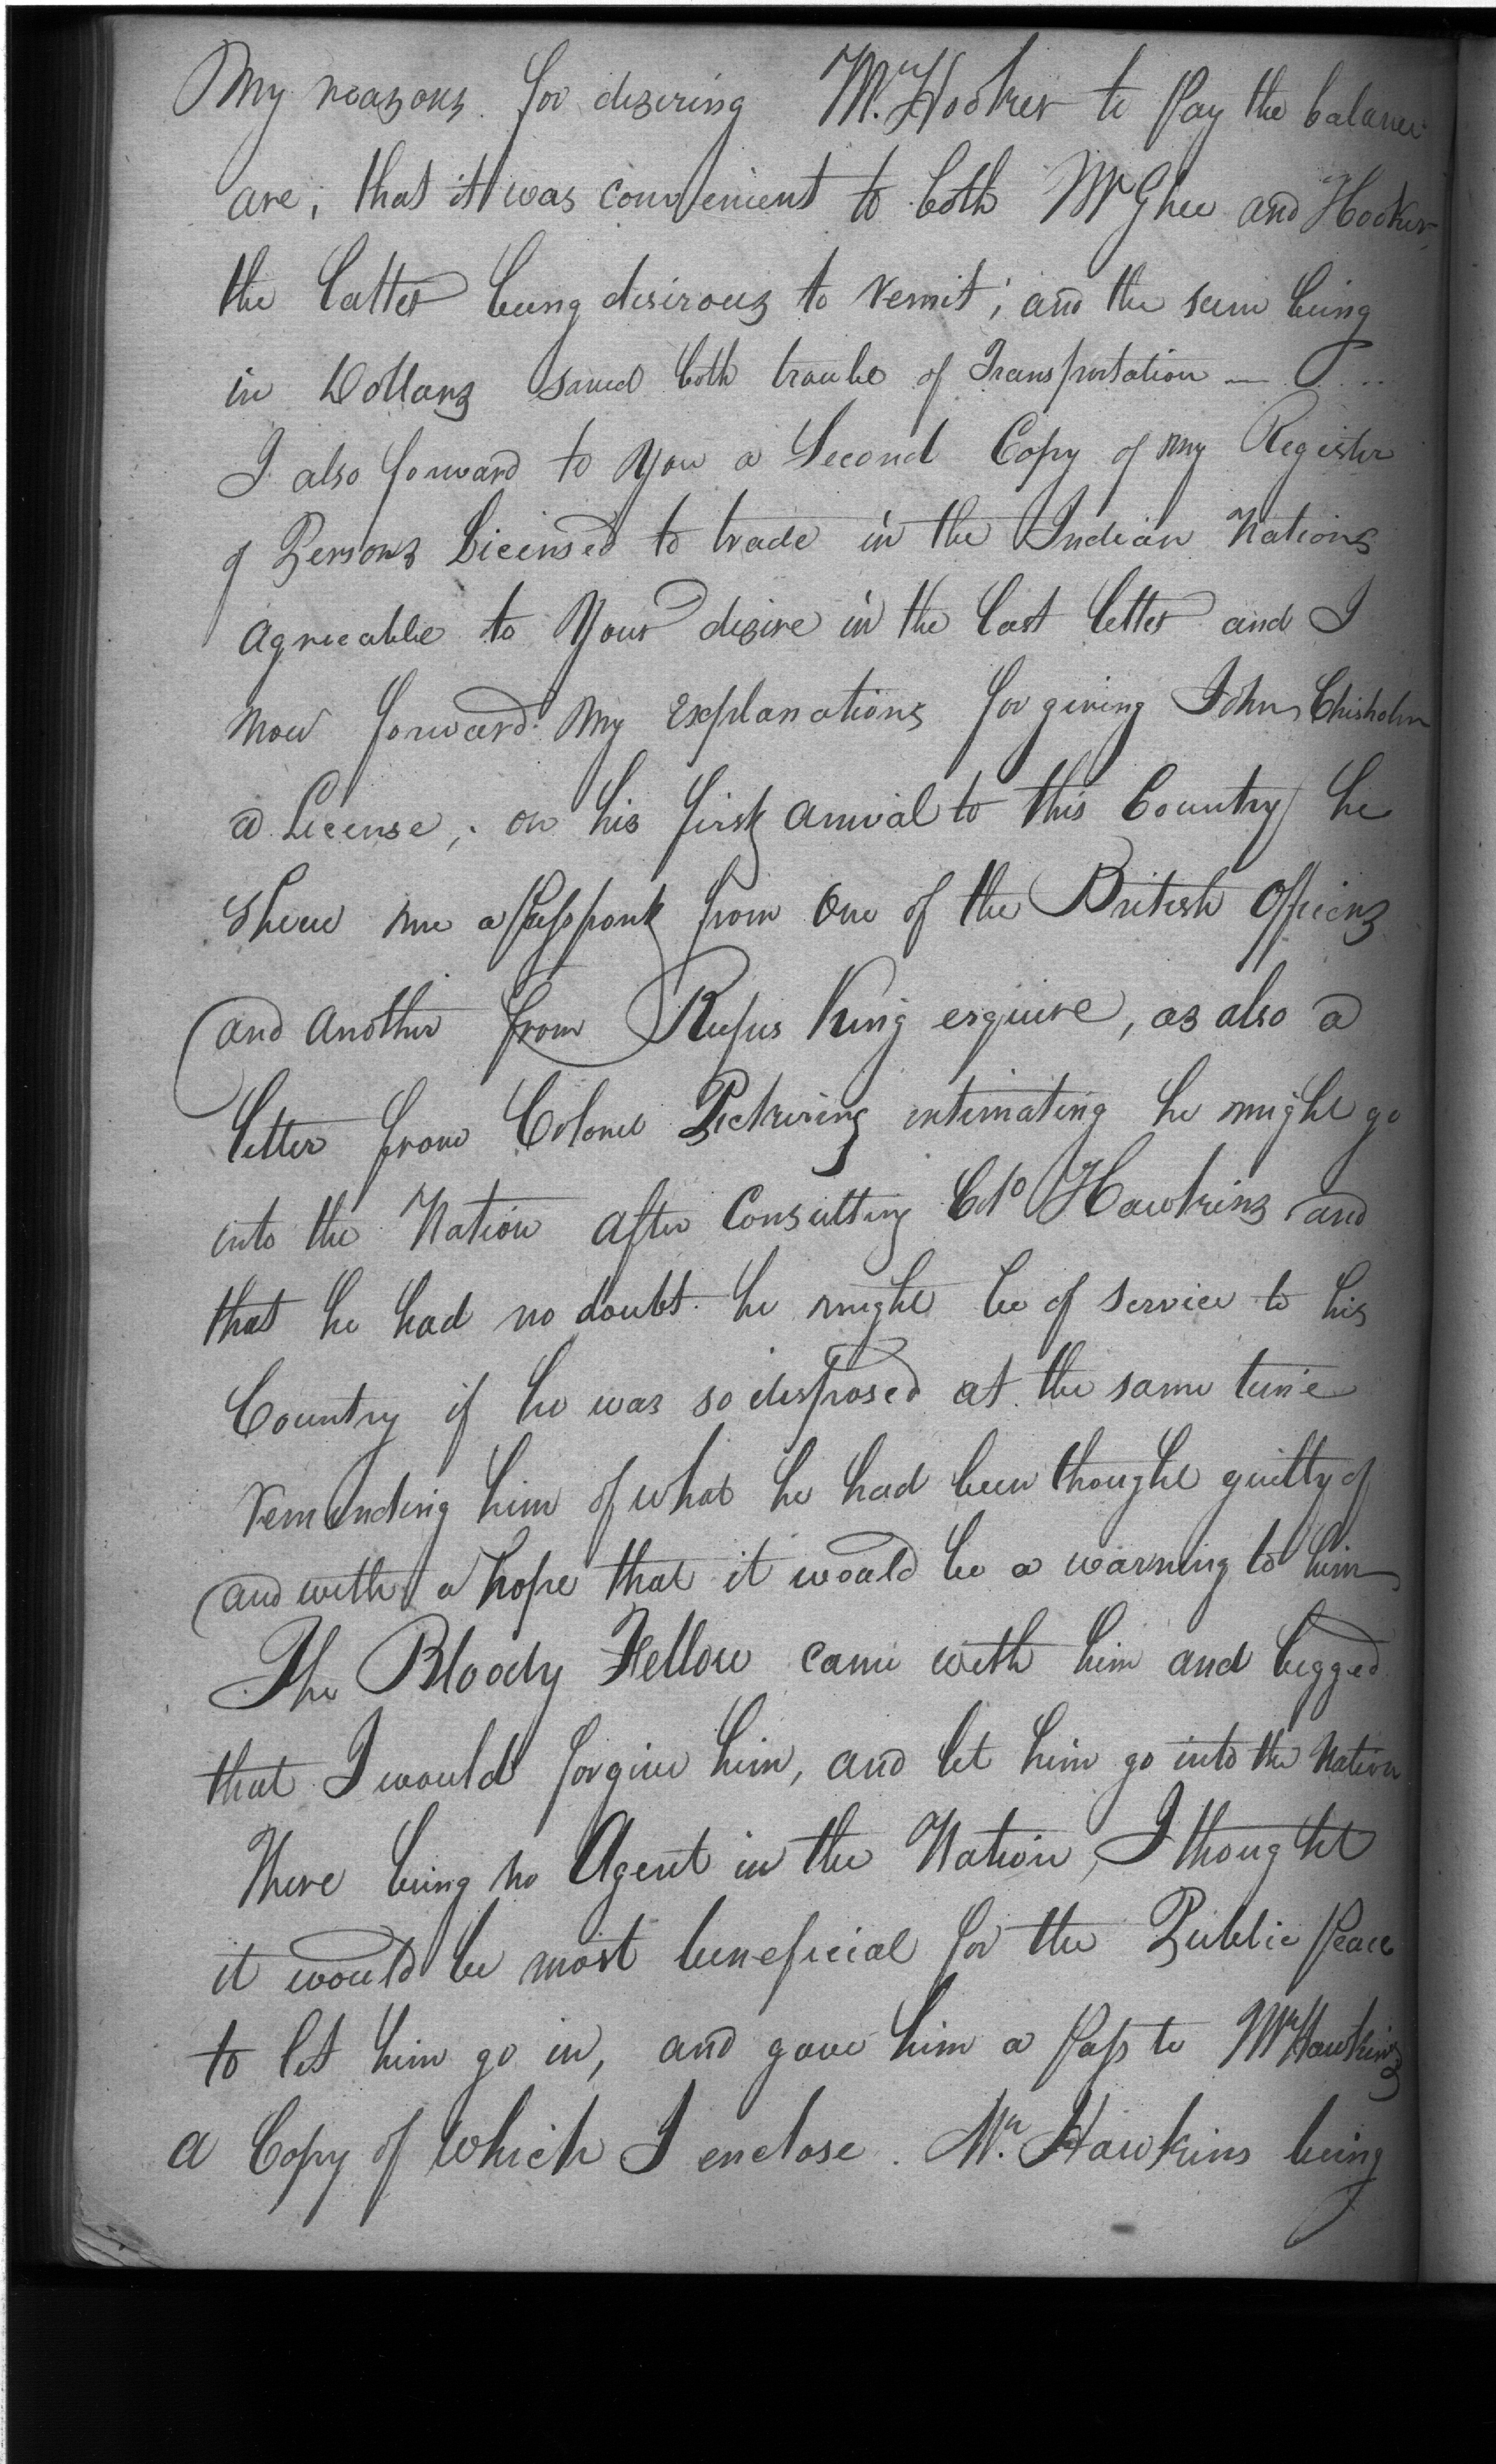 My reasons for desiring Mr. Hooker to pay the balance
are, that it was convenient to both McGhee and Hooker,
the latter being desirous to remit; and the sum being
in Dollars saved both trouble of Transportation —
I also forward to You a Second Copy of my Register
of Persons Licensed to trade in the Indian Nations
agreeable to Your desire in the last letter and I
now forward my explanations for giving John Chisholm
a License; on his first arrival to this Country he
shew me a passport from one of the British Officers
and another from Rufus King esquire, as also a
letter from Colonel Pickering intimating he might go
into the Nation after Consulting Colo Hawkins and
that he had no doubt he might be of service to his
Country if he was so disposed at the same time
reminding him of what he had been thought guilty of
and with a hope that it would be a warning to him
The Bloody Fellow came with him and begged
that I would forgive him, and let him go into the Nation
There being no Agent in the Nation, I thought
it would be most beneficial for the Public peace
to let him go in, and gave him a pass to Mr Hawkins
a Copy of which I enclose. Mr. Hawkins being